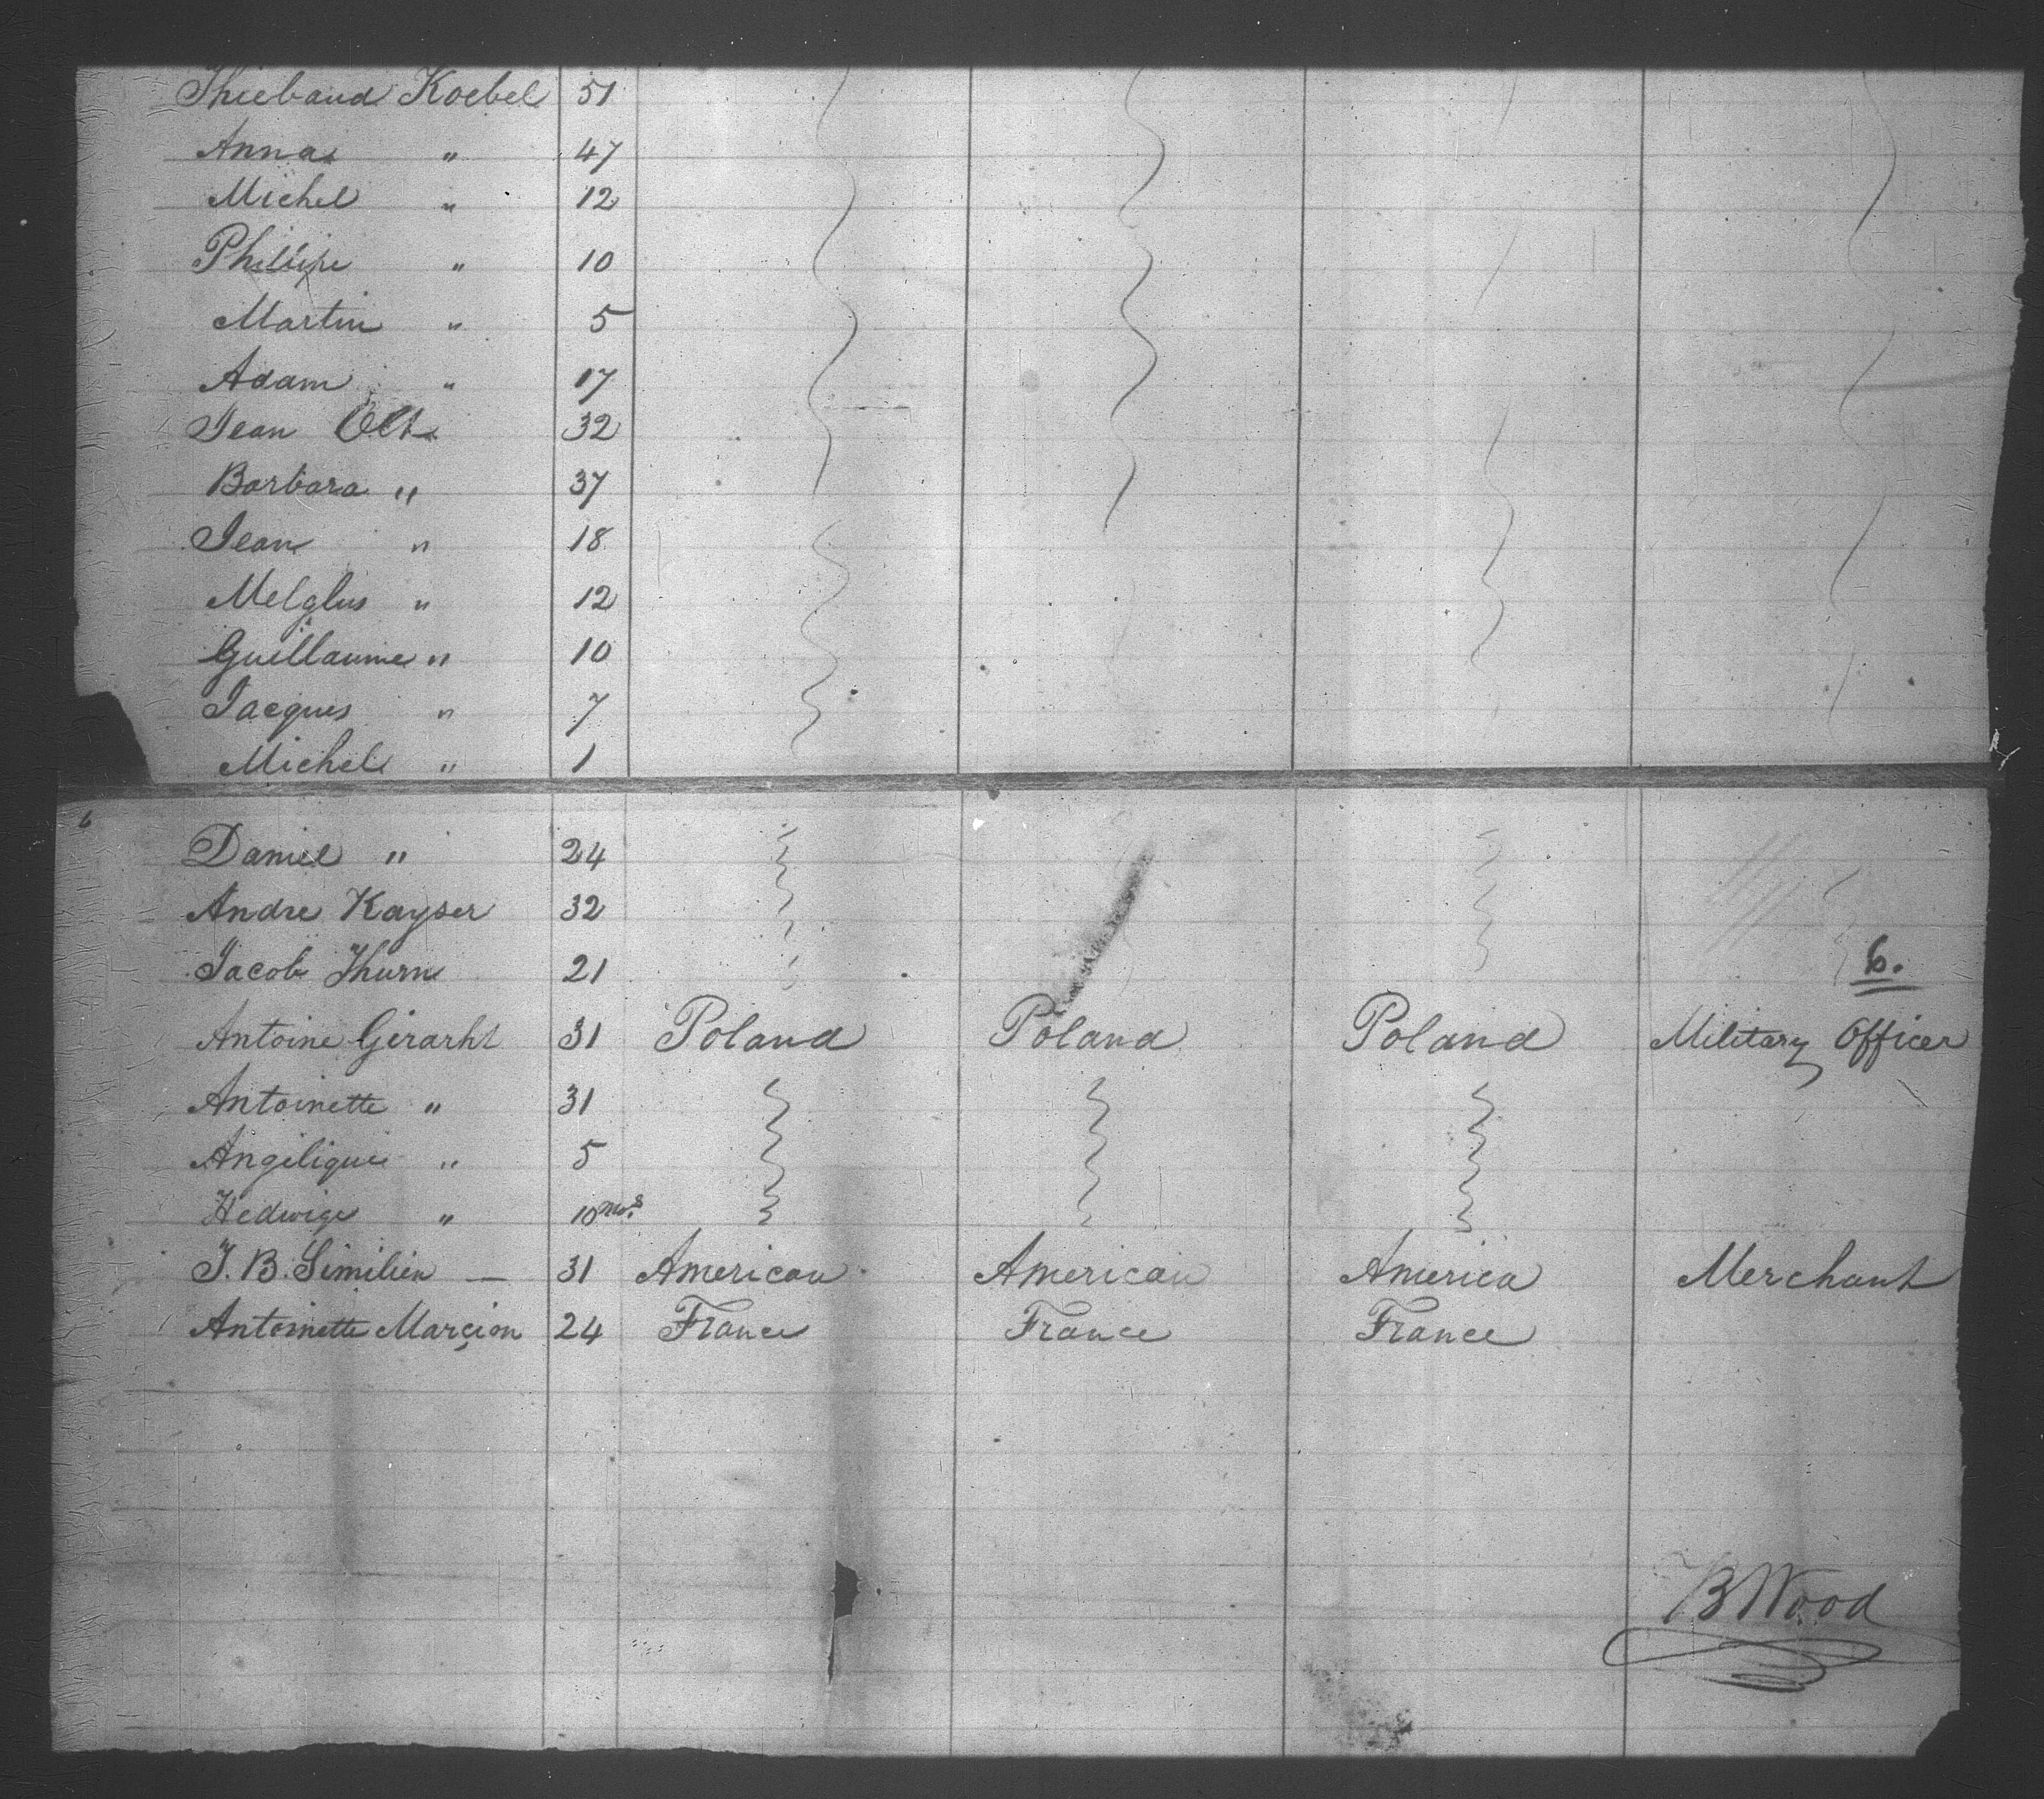 Thiebaud Koebel 51
Anna " 47
Michel " 12
Philipe " 10
Martin " 5
Adam " 17
Jean Olt 32
Barbara " 37
Jean " 18
Melglus " 12
Guillaume " 10
Jacques " 7
Michel " 1
6
Daniel " 24
Andre Kayser 32
Jacob Thurn 21
6.
Antoine Girarht 31 Poland Poland Poland Military Officer
Antoinette " 31
Angelique " 5
Hedwige " 10 mos
J. B. Similien — 31 American America America Merchant
Antoinette Marçion 24 France France France
B Wood